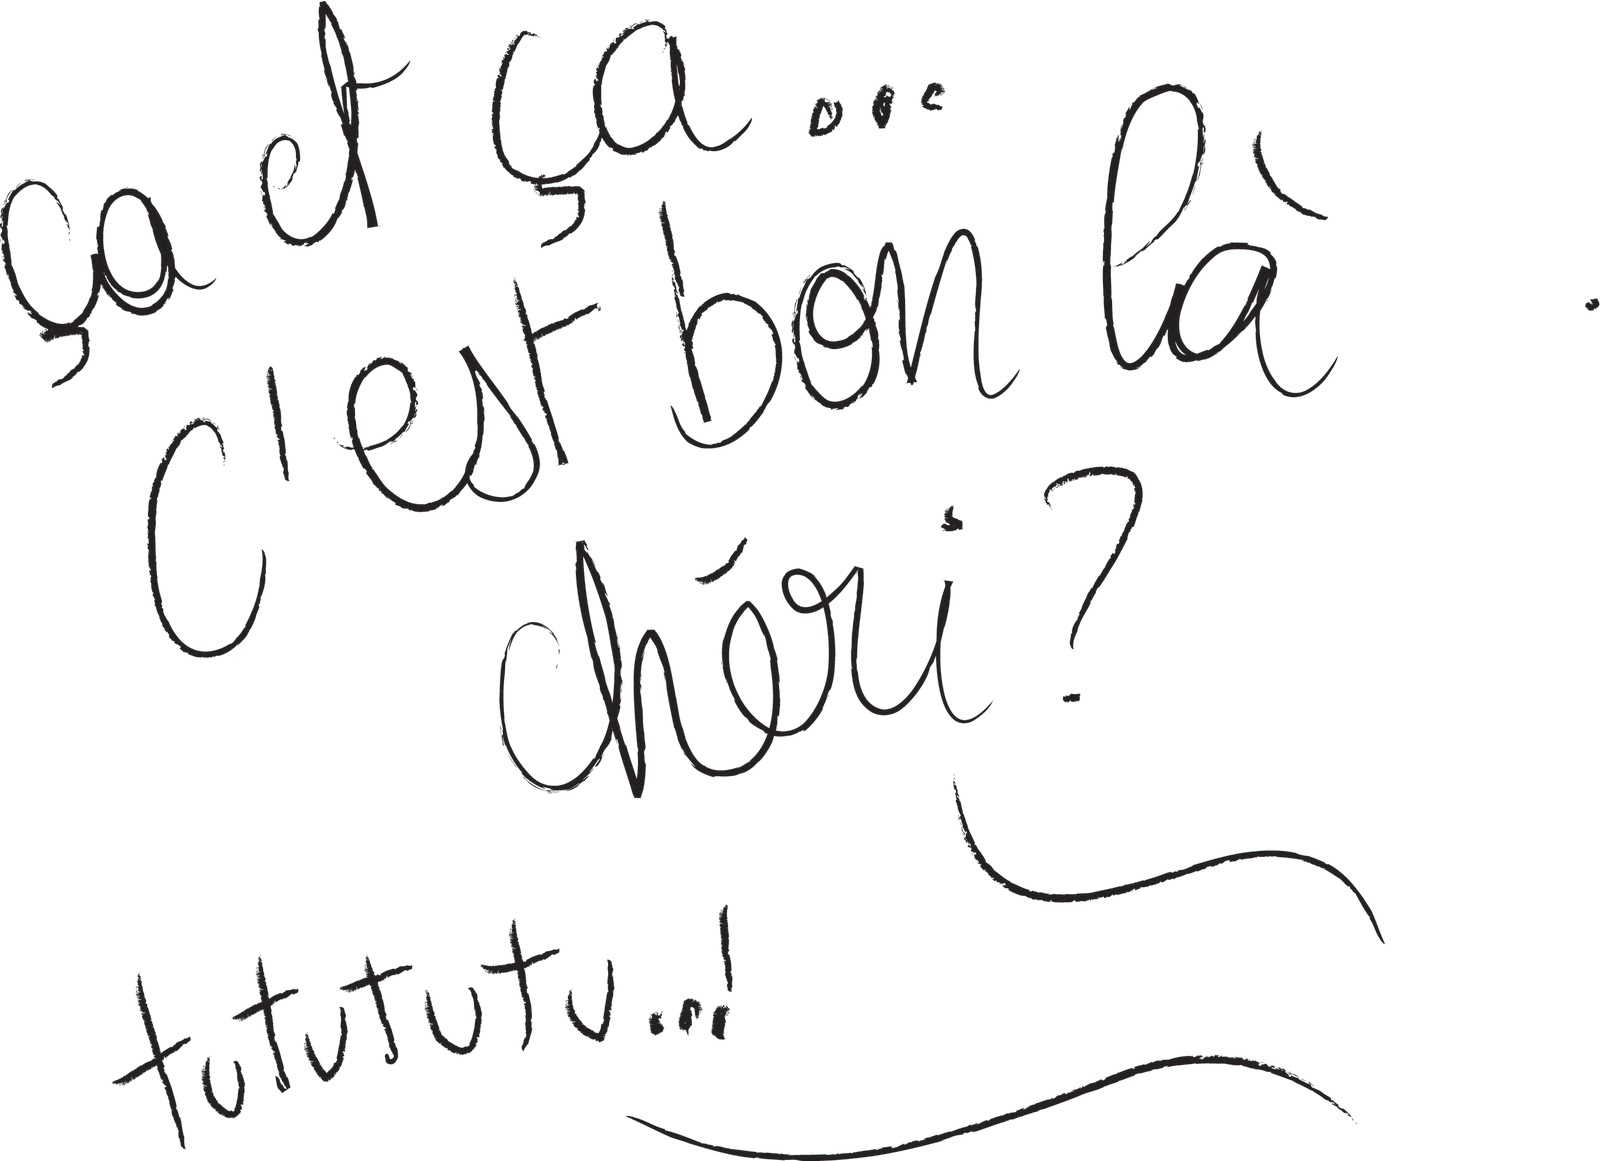 ça et ça...
c'est bon là
chéri ?
tutututu...!